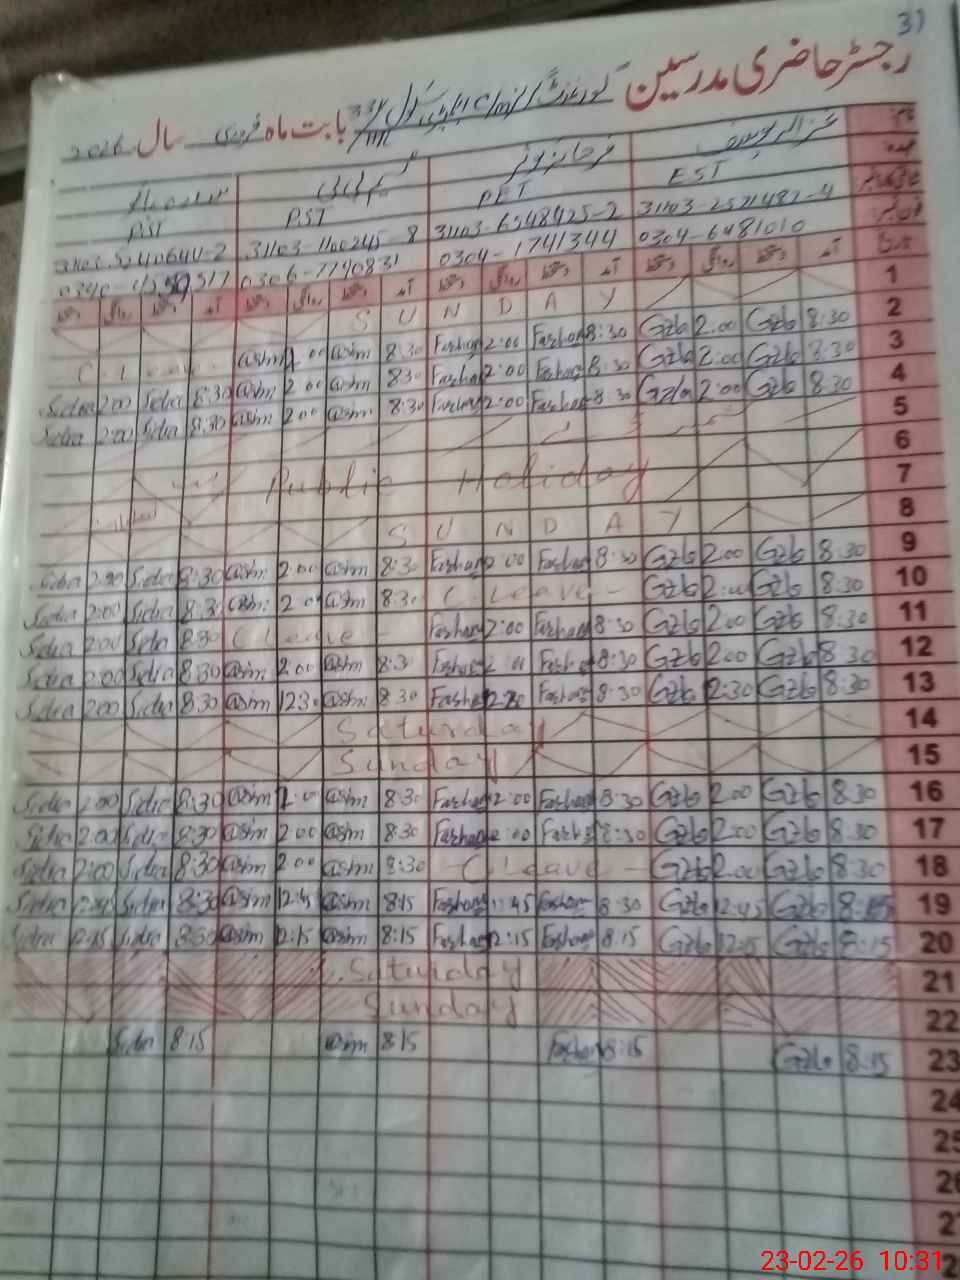 31
رجسٹر حاضری مدرسین گورنمنٹ بابت ماہ فروری سال 2026
PST PST PET EST
31103-1100245-8 31103-6548425-2 31103-2521482-4
0306-7740831 0304-1741344 0304-6481010
آمد دستخط روانگی دستخط آمد دستخط روانگی دستخط
1 SUNDAY
2 C. Leave @sim 2:00 @sim 8:30 Farhan 2:00 Farhan 8:30 Gzb 2:00 Gzb 8:30
3 Sidra 2:00 Sidra 8:30 @sim 2:00 @sim 8:30 Farhan 2:00 Farhan 8:30 Gzb 2:00 Gzb 8:30
4 Sidra 2:00 Sidra 8:30 @sim 2:00 @sim 8:30 Farhan 2:00 Farhan 8:30 Gzb 2:00 Gzb 8:30
5
6 Public Holiday
7
8 SUNDAY
9 Sidra 2:00 Sidra 8:30 @sim 2:00 @sim 8:30 Farhan 2:00 Farhan 8:30 Gzb 2:00 Gzb 8:30
10 Sidra 2:00 Sidra 8:30 @sim 2:00 @sim 8:30 C. Leave - Gzb 2:00 Gzb 8:30
11 Sidra 2:00 Sidra 8:30 C Leave - Farhan 2:00 Farhan 8:30 Gzb 2:00 Gzb 8:30
12 Sidra 2:00 Sidra 8:30 @sim 2:00 @sim 8:30 Farhan 2:00 Farhan 8:30 Gzb 2:00 Gzb 8:30
13 Sidra 2:00 Sidra 8:30 @sim 12:30 @sim 8:30 Farhan 12:30 Farhan 8:30 Gzb 12:30 Gzb 8:30
14 Saturday
15 Sunday
16 Sidra 2:00 Sidra 8:30 @sim 2:00 @sim 8:30 Farhan 2:00 Farhan 8:30 Gzb 2:00 Gzb 8:30
17 Sidra 2:00 Sidra 8:30 @sim 2:00 @sim 8:30 Farhan 2:00 Farhan 8:30 Gzb 2:00 Gzb 8:30
18 Sidra 2:00 Sidra 8:30 @sim 2:00 @sim 8:30 - C Leave - Gzb 2:00 Gzb 8:30
19 Sidra 12:45 Sidra 8:30 @sim 12:45 @sim 8:15 Farhan 12:45 Farhan 8:30 Gzb 12:45 Gzb 8:15
20 Sidra 12:15 Sidra 8:30 @sim 12:15 @sim 8:15 Farhan 12:15 Farhan 8:15 Gzb 12:15 Gzb 8:15
21 Saturday
22 Sunday
23 Sidra 8:15 @sim 8:15 Farhan 8:15 Gzb 8:15
24
25
26
27
23-02-26 10:31